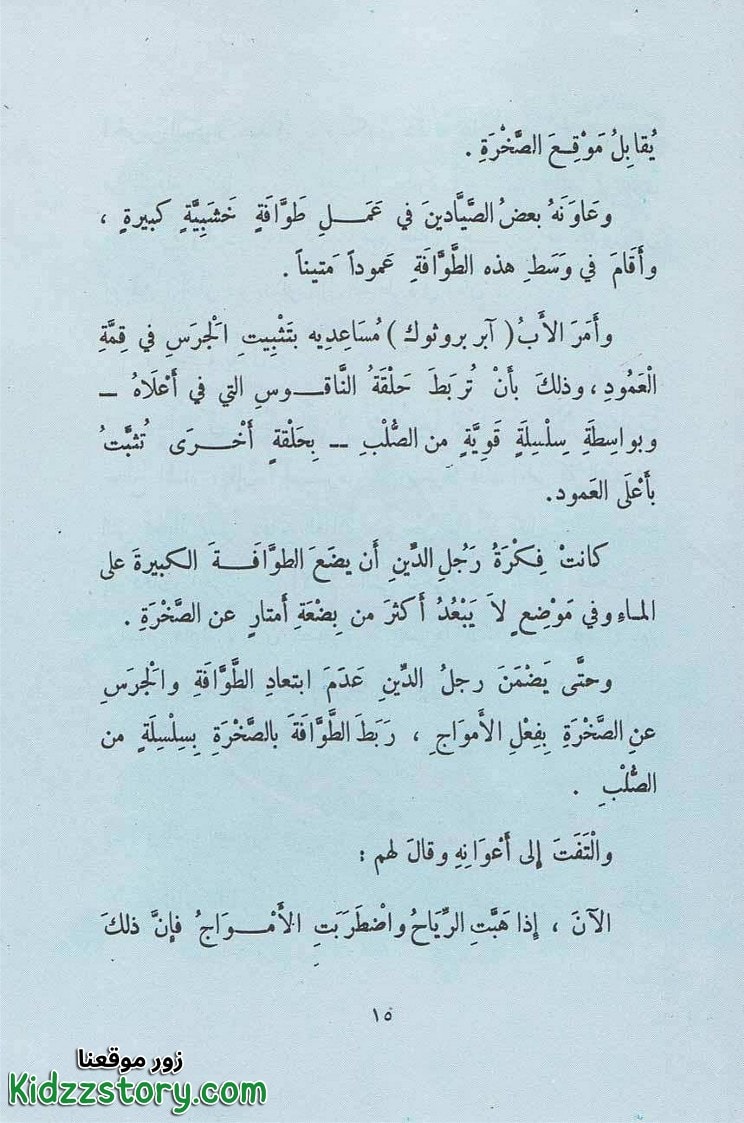 يُقَابِلُ مَوْقِعَ الصَّخْرَةِ .
وعَاوَنَهُ بعضُ الصَّيَّادينَ في عَمَلِ طَوَّافَةٍ خَشَبِيَّةٍ كبيرةٍ ،
وأَقَامَ في وَسَطِ هذه الطَّوَّافَةِ عموداً مَتيناً .
وأَمَرَ الأَبُ ( آبر بروثوك ) مُسَاعِديه بتَثْبِيتِ الْجرَسِ في قِمَّةِ
الْعَمُودِ ، وذلكَ بأَنْ تُربَطَ حَلْقَةُ النَّاقوسِ التي في أَعْلَاهُ –
وبواسِطَةِ سِلْسِلَةٍ قَوِيَّةٍ مِن الصُّلْبِ – بِحَلْقةٍ أُخْرَى تُثبَّتُ
بأَعْلَى العَمود .
كانتْ فِكْرَةُ رَجُلِ الدِّينِ أَن يضَعَ الطوَّافَةَ الكبيرةَ على
الماءِ وفي مَوْضِعٍ لاَ يَبْعُدُ أَكثرَ من بِضْعَةِ أَمتارٍ عن الصَّخْرَةِ .
وحتَّى يَضْمَنَ رجلُ الدِّينِ عَدَمَ ابتعادِ الطَّوَّافَةِ والْجرَسِ
عنِ الصَّخْرَةِ بِفِعْلِ الأَمواجِ ، رَبَطَ الطَّوَّافَةَ بالصَّخْرَةِ بِسِلْسِلَةٍ من
الصُّلْبِ .
والْتَفَتَ إلى أَعْوَانِهِ وقالَ لهم :
الآنَ ، إذا هَبَّتِ الرِّيَاحُ واضْطَرَبَتِ الأَمْوَاجُ فإنَّ ذلكَ
١٥
زور موقعنا
Kidzzstory.com